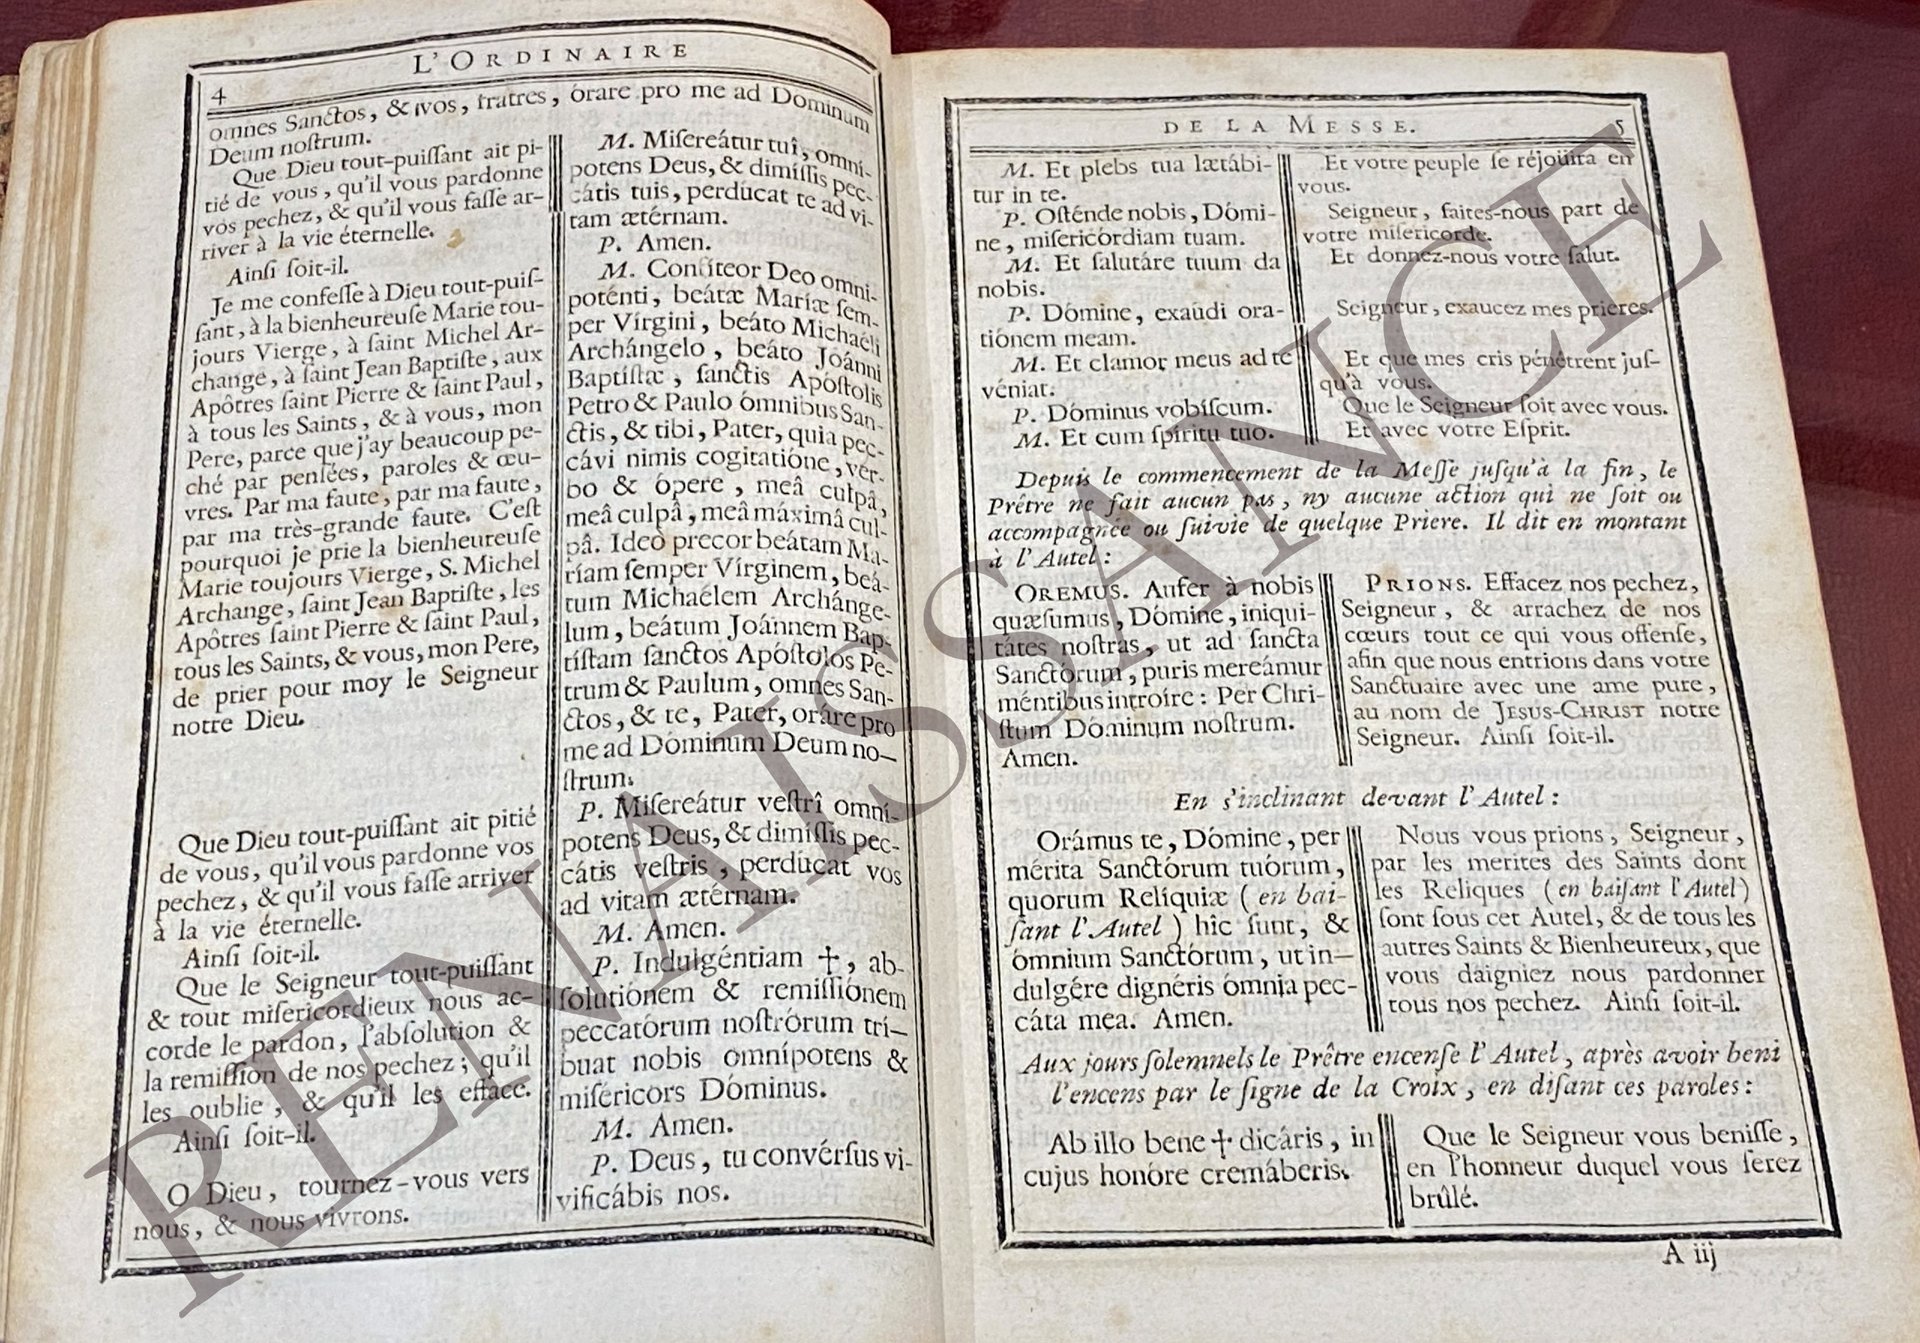 L'ORDINAIRE
4
omnes Sanctos, & vos, fratres, óráre pro me ad Dóminum
Deum nostrum.
Que Dieu tout-puiſſant ait pi-
tié de vous, qu'il vous pardonne
vos pechez, & qu'il vous faſſe ar-
river à la vie éternelle.
Ainſi ſoit-il.
Je me confeſſe à Dieu tout-puiſ-
ſant, à la bienheureuſe Marie tou-
jours Vierge, à ſaint Michel Ar-
change, à ſaint Jean Baptiſte, aux
Apôtres ſaint Pierre & ſaint Paul,
à tous les Saints, & à vous, mon
Pere, parce que j'ay beaucoup pe-
ché par penſées, paroles & œu-
vres. Par ma faute, par ma faute,
par ma très-grande faute. C'eſt
pourquoi je prie la bienheureuſe
Marie toujours Vierge, S. Michel
Archange, ſaint Jean Baptiſte, les
Apôtres ſaint Pierre & ſaint Paul,
tous les Saints, & vous, mon Pere,
de prier pour moy le Seigneur
notre Dieu.
Que Dieu tout-puiſſant ait pitié
de vous, qu'il vous pardonne vos
pechez, & qu'il vous faſſe arriver
à la vie éternelle.
Ainſi ſoit-il.
Que le Seigneur tout-puiſſant
& tout miſericordieux nous ac-
corde le pardon, l'abſolution &
la remiſſion de nos pechez; qu'il
les oublie, & qu'il les efface.
Ainſi ſoit-il.
O Dieu, tournez-vous vers
nous, & nous vivrons.
M. Miſereátur tuî, omní-
potens Deus, & dimíſſis pec-
cátis tuis, perdúcat te ad vi-
tam ætérnam.
P. Amen.
M. Confíteor Deo omni-
poténti, beátæ Maríæ ſem-
per Vírgini, beáto Michaéli
Archángelo, beáto Joánni
Baptíſtæ, ſanctis Apóſtolis
Petro & Paulo ómnibus San-
ctis, & tibi, Pater, quia pec-
cávi nimis cogitatióne, ver-
bo & ópere, meâ culpâ,
meâ culpâ, meâ máximâ cul-
pâ. Ideò precor beátam Ma-
ríam ſemper Vírginem, beá-
tum Michaélem Archánge-
lum, beátum Joánnem Bap-
tíſtam ſanctos Apóſtolos Pe-
trum & Paulum, omnes San-
ctos, & te, Pater, oráre pro
me ad Dóminum Deum no-
ſtrum.
P. Miſereátur veſtrî omní-
potens Deus, & dimíſſis pec-
cátis veſtris, perdúcat vos
ad vitam ætérnam.
M. Amen.
P. Indulgéntiam ✝, ab-
ſolutiónem & remiſſiónem
peccatórum noſtrórum trí-
buat nobis omnípotens &
miſéricors Dóminus.
M. Amen.
P. Deus, tu convérſus vi-
vificábis nos.
DE LA MESSE. 5
M. Et plebs tua lætábi-
tur in te.
P. Oſténde nobis, Dómi-
ne, miſericórdiam tuam.
M. Et ſalutáre tuum da
nobis.
P. Dómine, exaúdi ora-
tiónem meam.
M. Et clamor meus ad te
véniat.
P. Dóminus vobíſcum.
M. Et cum ſpíritu tuo.
Et votre peuple ſe réjoüira en
vous.
Seigneur, faites-nous part de
votre miſericorde.
Et donnez-nous votre ſalut.
Seigneur, exaucez mes prieres.
Et que mes cris pénétrent juſ-
qu'à vous.
Que le Seigneur ſoit avec vous.
Et avec votre Eſprit.
Depuis le commencement de la Meſſe juſqu'à la fin, le
Prêtre ne fait aucun pas, ny aucune action qui ne ſoit ou
accompagnée ou ſuivie de quelque Priere. Il dit en montant
à l'Autel :
OREMUS. Aufer à nobis
quæſumus, Dómine, iniqui-
tátes noſtras, ut ad ſancta
Sanctórum, puris mereámur
méntibus introíre : Per Chri-
ſtum Dóminum noſtrum.
Amen.
PRIONS. Effacez nos pechez,
Seigneur, & arrachez de nos
cœurs tout ce qui vous offenſe,
afin que nous entrions dans votre
Sanctuaire avec une ame pure,
au nom de JESUS-CHRIST notre
Seigneur. Ainſi ſoit-il.
En s'inclinant devant l'Autel :
Orámus te, Dómine, per
mérita Sanctórum tuórum,
quorum Relíquiæ (en bai-
ſant l'Autel) hîc ſunt, &
ómnium Sanctórum, ut in-
dulgére dignéris ómnia pec-
cáta mea. Amen.
Nous vous prions, Seigneur,
par les merites des Saints dont
les Reliques (en baiſant l'Autel)
ſont ſous cet Autel, & de tous les
autres Saints & Bienheureux, que
vous daigniez nous pardonner
tous nos pechez. Ainſi ſoit-il.
Aux jours ſolemnels le Prêtre encenſe l'Autel, après avoir beni
l'encens par le ſigne de la Croix, en diſant ces paroles :
Ab illo bene ✝ dicáris, in
cujus honóre cremáberis.
Que le Seigneur vous beniſſe,
en l'honneur duquel vous ſerez
brûlé.
A iij
RENAISSANCE